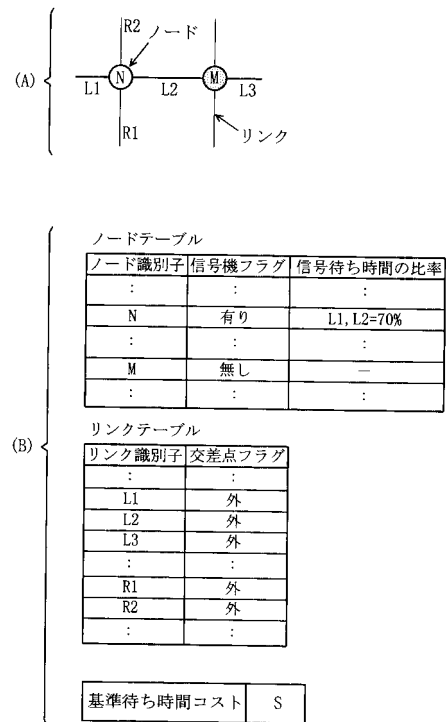 (A)
R2 ノード
N M
L1 L2 L3
R1 リンク
(B)
ノードテーブル
ノード識別子 信号機フラグ 信号待ち時間の比率
: : :
N 有り L1,L2=70%
: : :
M 無し —
: : :
リンクテーブル
リンク識別子 交差点フラグ
: :
L1 外
L2 外
L3 外
: :
R1 外
R2 外
: :
基準待ち時間コスト S